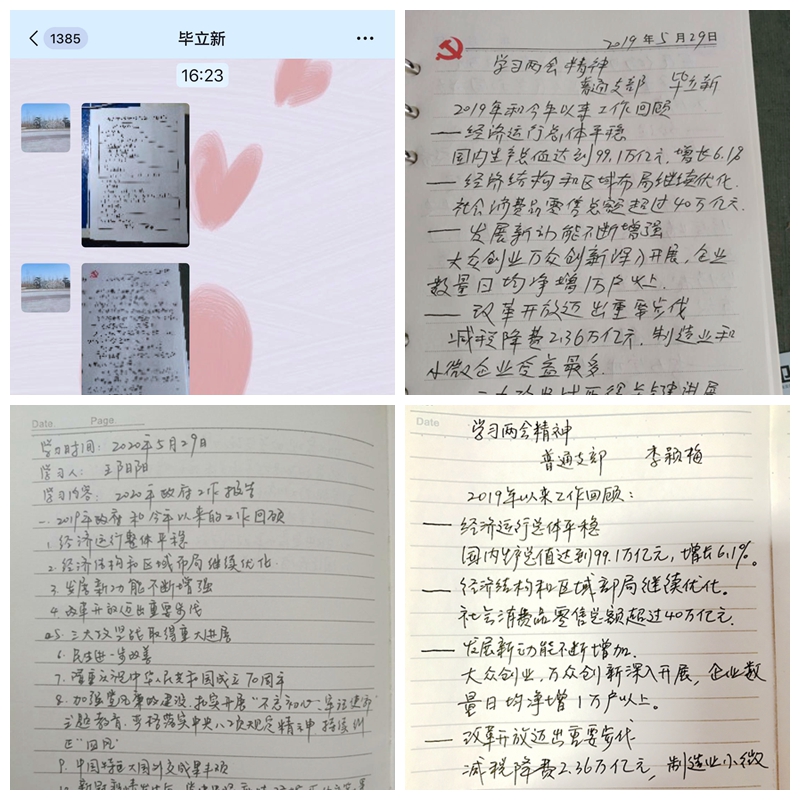 1385
毕立新
16:23
2019年5月29日
学习两会精神
普通支部 毕立新
2019年和今年以来工作回顾
一经济运行总体平稳
国内生产总值达到99.1万亿元,增长6.1%
一经济结构和区域布局继续优化.
社会消费品零售总额超过40万亿元.
一发展新动能不断增强
大众创业万众创新深入开展,企业
数量日均净增1万户以上.
一改革开放迈出重要步伐
减税降费2.36万亿元.制造业和
小微企业受益最多.
Date Page.
学习时间:2020年5月29日
学习人:王阳阳
学习内容:2020年政府工作报告
一.2019年政府和今年以来的工作回顾
1.经济运行整体平稳
2.经济结构和区域布局继续优化.
3.发展新动能不断增强
4.改革开放迈出重要步伐
5.三大攻坚战取得重大进展
6.民生进一步改善
7.隆重庆祝中华人民共和国成立70周年
8.加强党风廉政建设,扎实开展"不忘初心、牢记使命"
主题教育.严格落实中央八项规定精神持续纠
正"四风"
9.中国特色大国外交成果丰硕
Date
学习两会精神
普通支部 李颖梅
2019年以来工作回顾:
一经济运行总体平稳
国内生产总值达到99.1万亿元,增长6.1%。
一经济结构和区域部局继续优化。
社会消费品零售总额超过40万亿元.
一发展新动能不断增加.
大众创业,万众创新深入开展,企业数
量日均净增1万户以上。
一改革开放迈出重要步伐
减税降费2.36万亿元,制造业小微